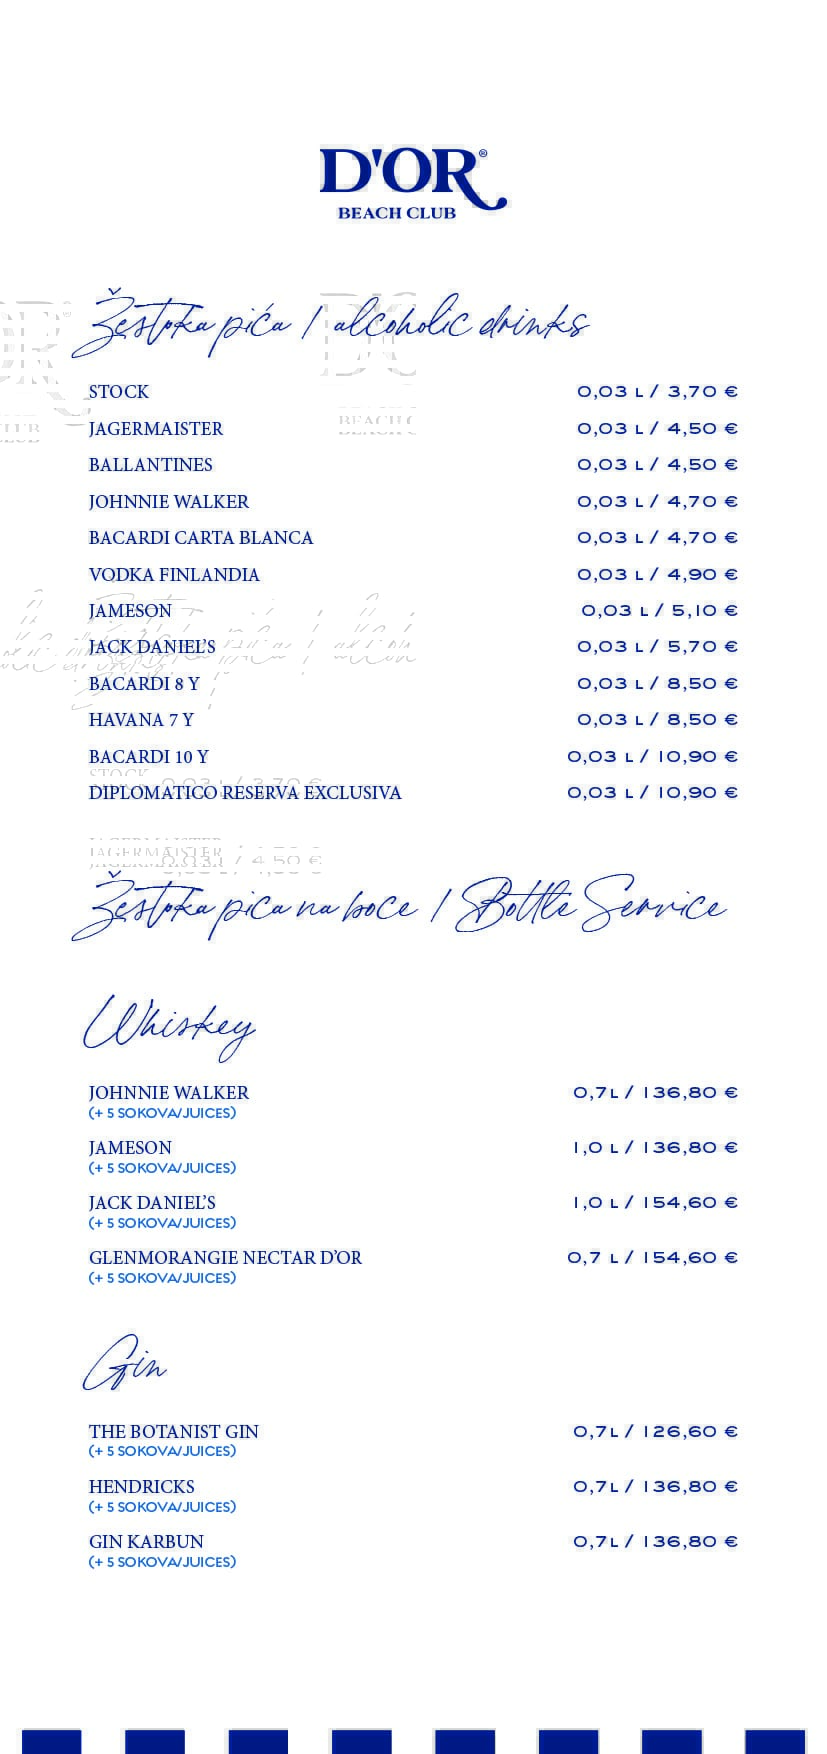 D'OR®
BEACH CLUB
Žestoka pića / alcoholic drinks
STOCK 0,03 L / 3,70 €
JAGERMAISTER 0,03 L / 4,50 €
BALLANTINES 0,03 L / 4,50 €
JOHNNIE WALKER 0,03 L / 4,70 €
BACARDI CARTA BLANCA 0,03 L / 4,70 €
VODKA FINLANDIA 0,03 L / 4,90 €
JAMESON 0,03 L / 5,10 €
JACK DANIEL'S 0,03 L / 5,70 €
BACARDI 8 Y 0,03 L / 8,50 €
HAVANA 7 Y 0,03 L / 8,50 €
BACARDI 10 Y 0,03 L / 10,90 €
DIPLOMATICO RESERVA EXCLUSIVA 0,03 L / 10,90 €
Žestoka pića na boce / Bottle Service
Whiskey
JOHNNIE WALKER 0,7L / 136,80 €
(+ 5 SOKOVA/JUICES)
JAMESON 1,0 L / 136,80 €
(+ 5 SOKOVA/JUICES)
JACK DANIEL'S 1,0 L / 154,60 €
(+ 5 SOKOVA/JUICES)
GLENMORANGIE NECTAR D'OR 0,7 L / 154,60 €
(+ 5 SOKOVA/JUICES)
Gin
THE BOTANIST GIN 0,7L / 126,60 €
(+ 5 SOKOVA/JUICES)
HENDRICKS 0,7L / 136,80 €
(+ 5 SOKOVA/JUICES)
GIN KARBUN 0,7L / 136,80 €
(+ 5 SOKOVA/JUICES)